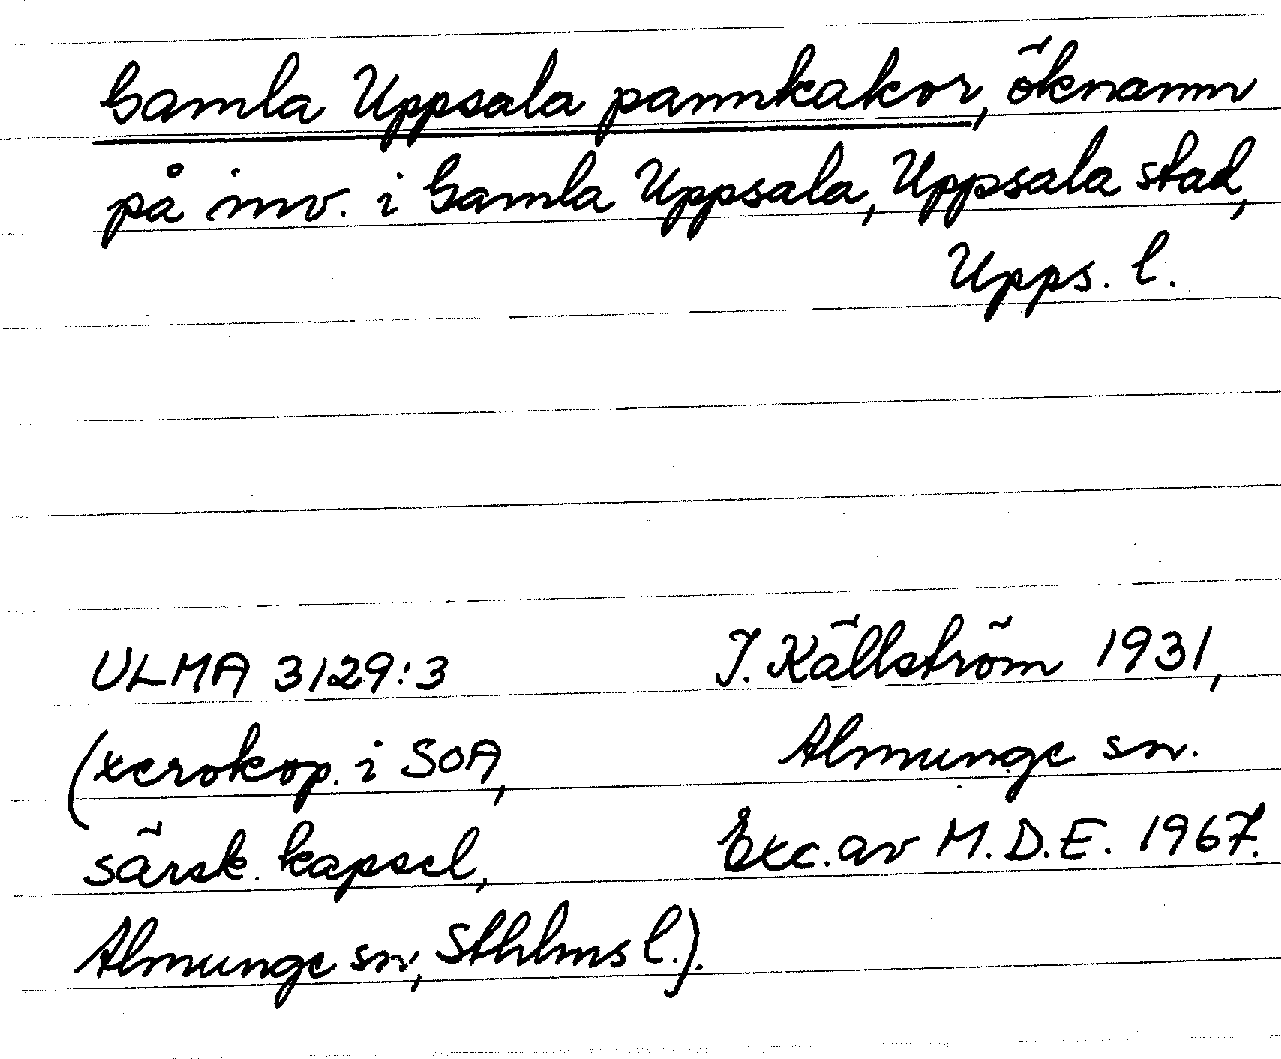 Gamla Uppsala pannkakor, öknamn
på inv. i Gamla Uppsala, Uppsala stad,
Upps. l.
ULMA 3129:3
(xerokop. i SOA,
särsk. kapsel,
Almunge sn, Sthlms l.).
J. Källström 1931,
Almunge sn.
Exc. av M.D.E. 1967.